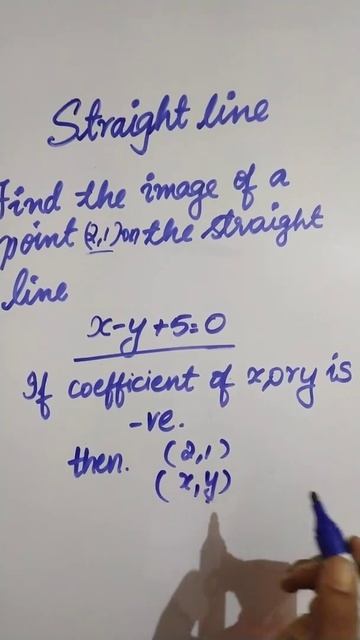 Straight line
Find the image of a
point (2,1) on the straight
line
x-y+5=0
If coefficient of x,or y is
-ve.
then. (2,1)
(x,y)